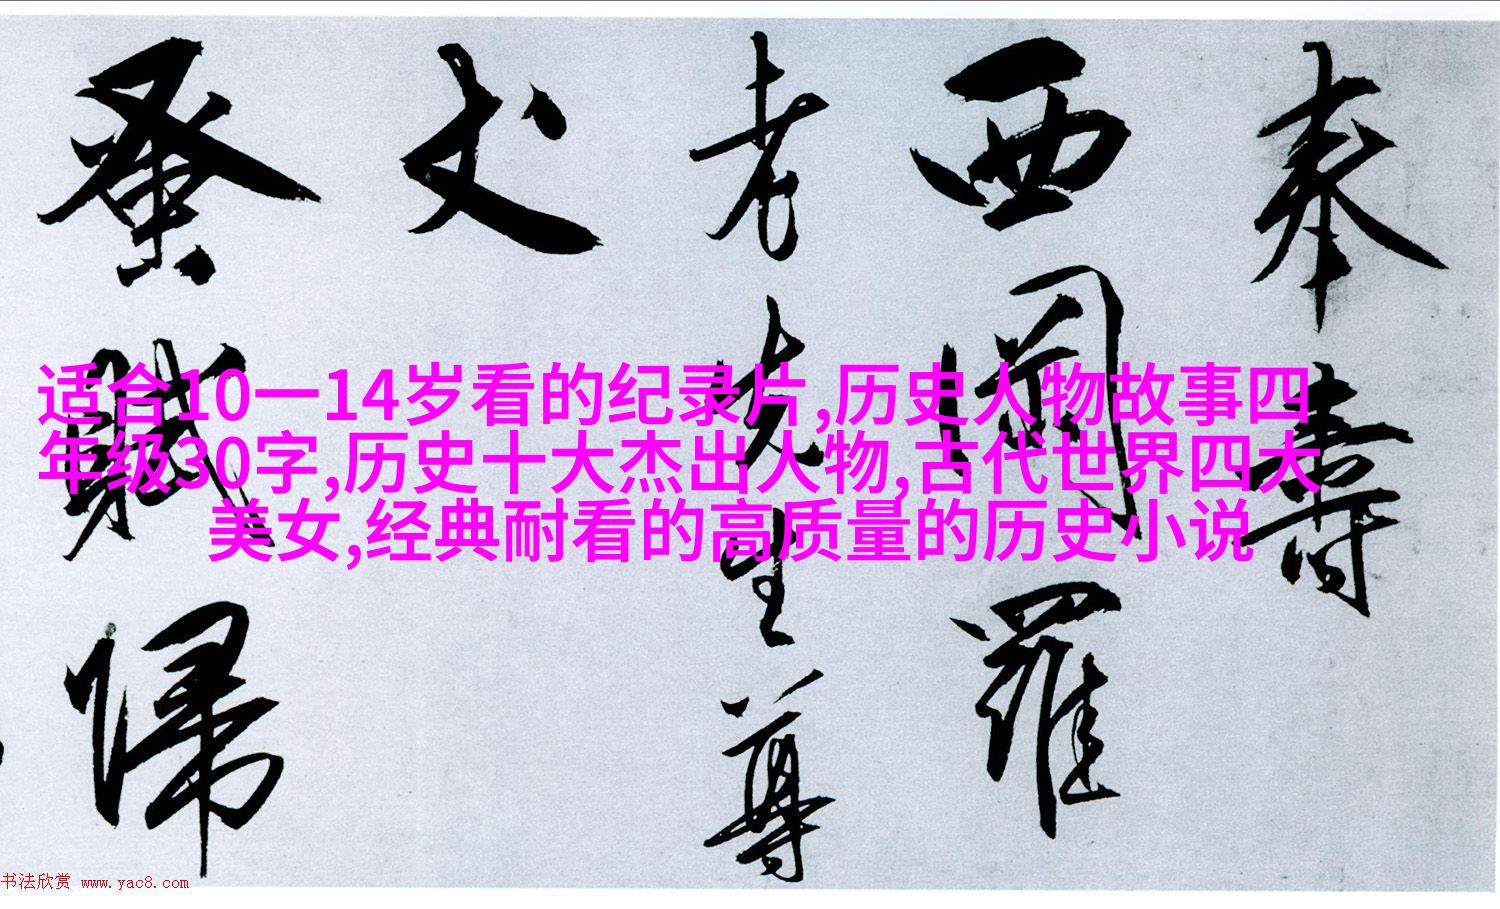 奉壽
西圃羅
老先生尊
丈
蚤賦歸
适合10一14岁看的纪录片,历史人物故事四
年级30字,历史十大杰出人物,古代世界四大
美女,经典耐看的高质量的历史小说
书法欣赏 www.yac8.com